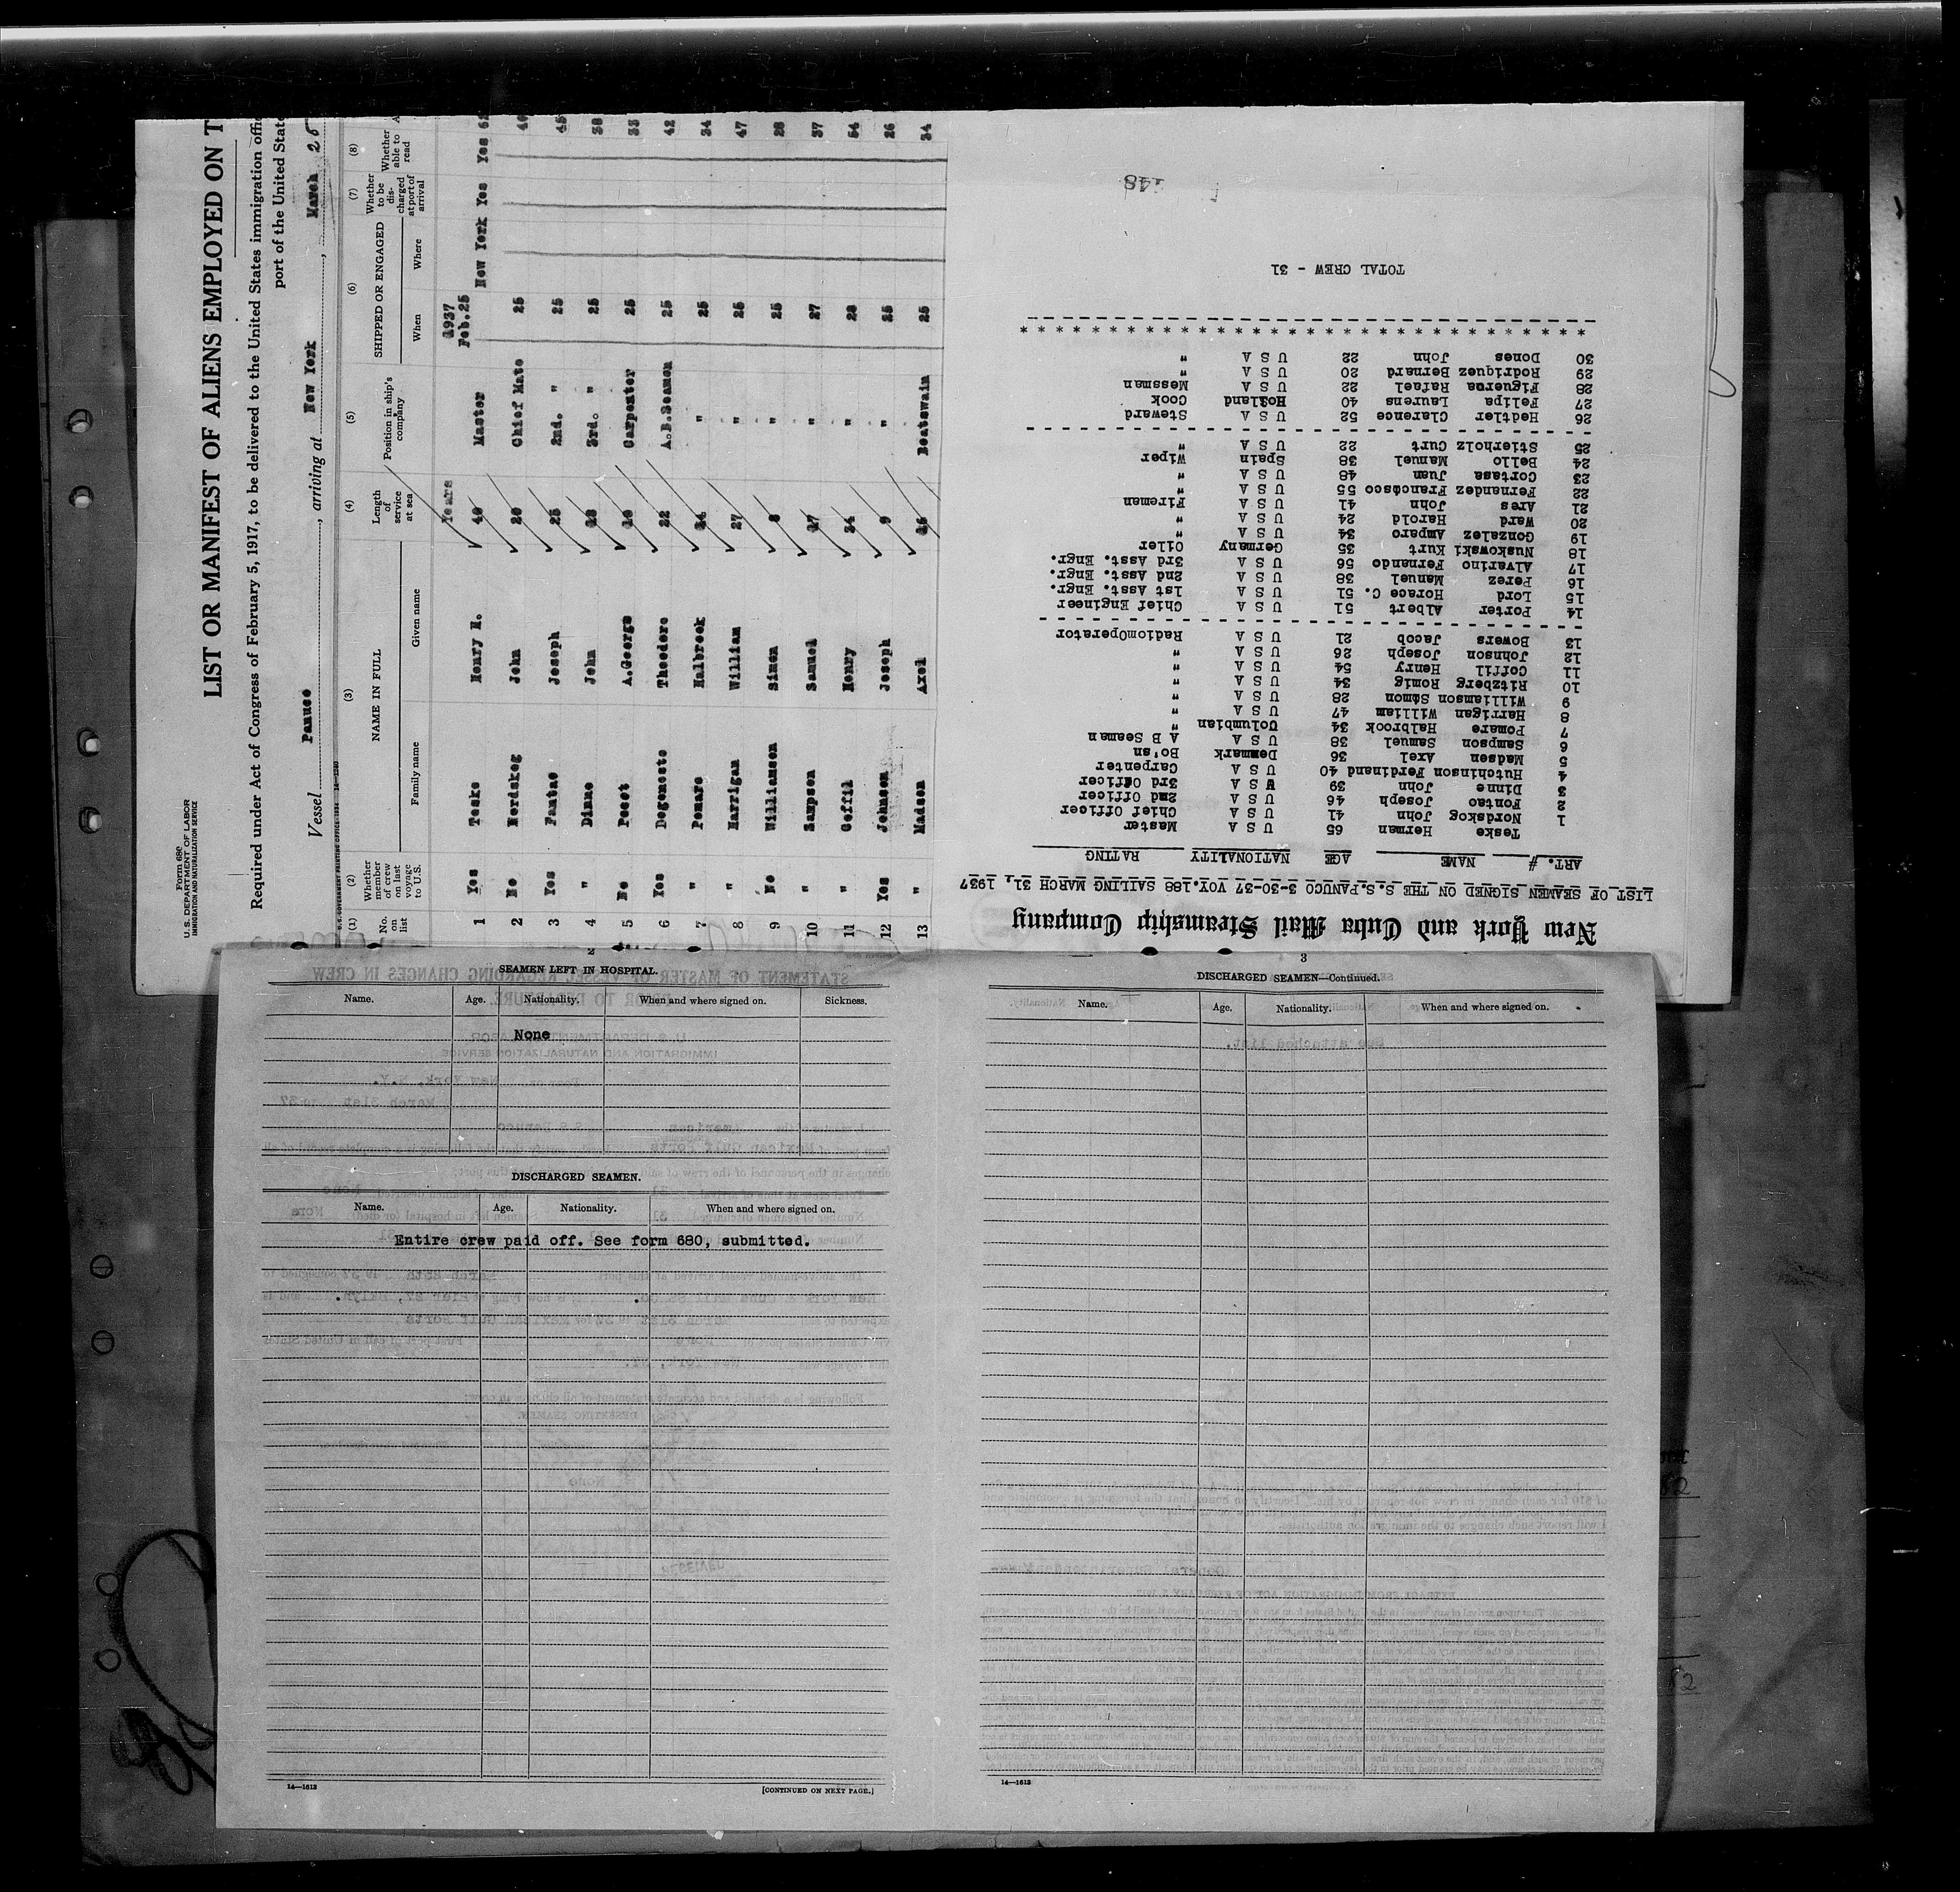 Form 680
U. S. DEPARTMENT OF LABOR
IMMIGRATION AND NATURALIZATION SERVICE
LIST OR MANIFEST OF ALIENS EMPLOYED ON T
Required under Act of Congress of February 5, 1917, to be delivered to the United States immigration offic
port of the United State
Vessel Panuco, arriving at New York, March 25
(1) (2) (3) (4) (5) (6) (7) (8)
No. on list
Whether member of crew on last voyage to U.S.
NAME IN FULL
Family name Given name
Length of service at sea
Position in ship's company
SHIPPED OR ENGAGED
When Where
Whether to be discharged at port of arrival
Whether able to read
Years 1937
1 Yes Teske Henry H. 40 Master Feb.25 New York Yes Yes 62
2 No Nordskog John 20 Chief Mate 25 40
3 Yes Fantao Joseph 25 2nd. " 25 45
4 " Dinne John 18 3rd. " 25 38
5 No Pecot A.George 10 Carpenter 25 33
6 Yes Degoneste Theodore 22 A.B.Seamen 25 42
7 " Pomare Halbrook 14 " 25 34
8 " Harrigan William 27 " 25 47
9 No Williamson Simon 8 " 25 28
10 " Sampson Samuel 17 " 27 37
11 " Coffil Henry 34 " 28 54
12 Yes Johnson Joseph 9 " 25 26
13 " Madsen Axel 16 Boatswain 25 34
New York and Cuba Mail Steamship Company
LIST OF SEAMEN SIGNED ON THE S.S.PANUCO 3-30-37 VOY.188 SAILING MARCH 31, 1937
ART. # NAME AGE NATIONALITY RATING
Teske Herman 65 U S A Master
1 Nordskog John 41 U S A Chief Officer
2 Fontao Joseph 46 U S A 2nd Officer
3 Dinne John 39 U S A 3rd Officer
4 Hutchinson Ferdinand 40 U S A Carpenter
5 Madsen Axel 36 Denmark Bo'sn
6 Sampson Samuel 38 U S A A B Seaman
7 Pomare Halbrook 34 Columbian "
8 Harrigan William 47 U S A "
9 Williamson Simon 28 U S A "
10 Ritzberg Romig 34 U S A "
11 Coffil Henry 54 U S A "
12 Johnson Joseph 26 U S A "
13 Bowers Jacob 21 U S A RadiomOperator
14 Porter Albert 51 U S A Chief Engineer
15 Lord Horace C. 51 U S A 1st Asst. Engr.
16 Perez Manuel 38 U S A 2nd Asst. Engr.
17 Alvarino Fernando 56 U S A 3rd Asst. Engr.
18 Nuskowski Kurt 35 Germany Oiler
19 Gonzalez Amparo 34 U S A "
20 Ward Harold 24 U S A "
21 Ares John 41 U S A Fireman
22 Fernandez Francisco 55 U S A "
23 Cortasa Juan 48 U S A "
24 Bello Manuel 38 Spain Wiper
25 Stierholz Curt 22 U S A "
26 Heitler Clarence 52 U S A Steward
27 Felipa Laurens 40 Holland Cook
28 Figueroa Rafael 22 U S A Messman
29 Rodriquez Bernard 20 U S A "
30 Dones John 22 U S A "
* * * * * * * * * * * * * * * * * * * * * * * * * * * * * * * *
TOTAL CREW - 31
148
2
SEAMEN LEFT IN HOSPITAL.
Name. Age. Nationality. When and where signed on. Sickness.
None
DISCHARGED SEAMEN.
Name. Age. Nationality. When and where signed on.
Entire crew paid off. See form 680, submitted.
14—1613 [CONTINUED ON NEXT PAGE.]
3
DISCHARGED SEAMEN—Continued.
Name. Age. Nationality. When and where signed on.
14—1613